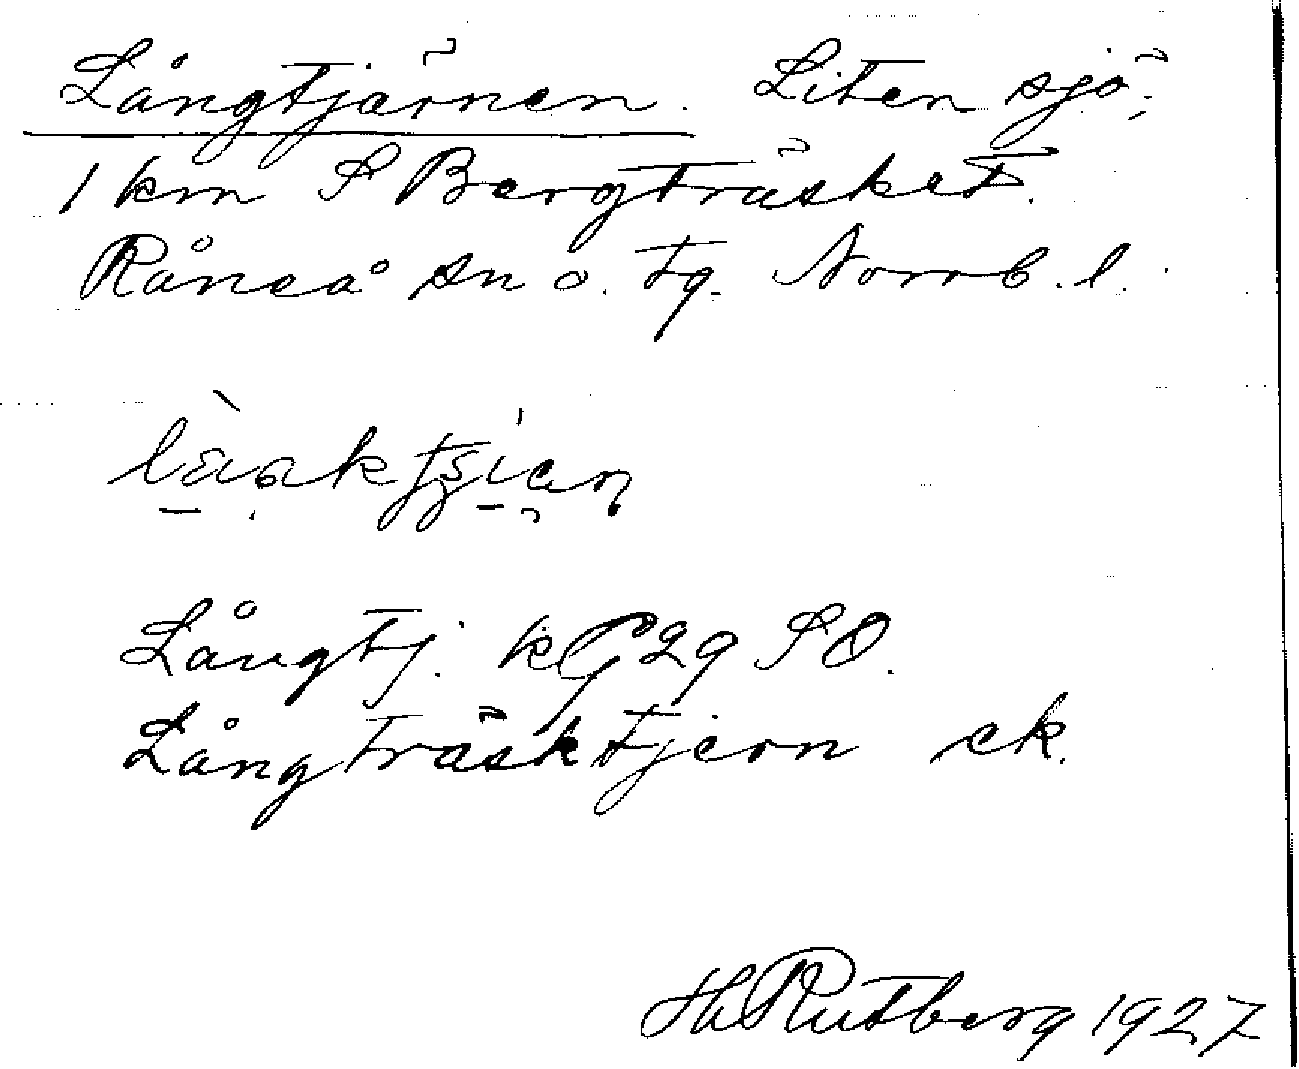 Långtjärnen. Liten sjö,
1 km S Bergträsket.
Råneå sn o. tg. Norrb. l.
Långtj. kG 29 SO.
Långträsktjern ek.
Hh Rutberg 1927